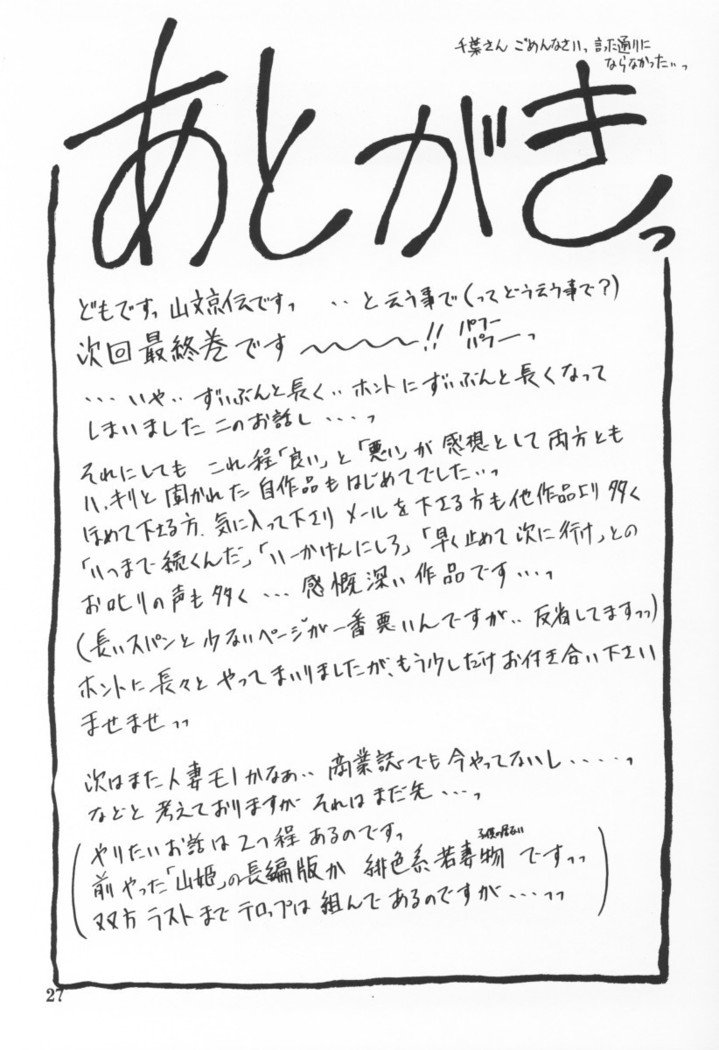 千葉さん ごめんなさいっ 言った通りに
ならなかったぃっ
あとがきっ
どもですっ 山文京伝ですっ ‥と云う事で(ってどう云う事で?)
次回最終巻です〜〜〜〜!! パフーパフーっ
‥‥いや‥ずいぶんと長く‥ホントにずいぶんと長くなって
しまいましたこのお話し‥‥っ
それにしても これ程「良い」と「悪い」が感想として両方とも
ハッキリと聞かれた自作品もはじめてでした‥っ
ほめて下さる方、気に入って下さり メールを下さる方も他作品より多く
「いつまで続くんだ」、「いーかげんにしろ」、「早く止めて次に行け」との
お叱りの声も多く‥‥感慨深い作品です‥‥っ
(長いスパンと少ないページが一番悪いんですが‥反省してますっっ)
ホントに長々とやってまいりましたが、もう少しだけお付き合い下さい
ませませっっ
次はまた人妻モノかなぁ‥商業誌でも今やってないし‥‥‥っ
などと考えておりますが それはまだ先‥‥っ
(やりたいお話は2つ程あるのですっ
前やった「山姫」の長編版か 緋色系若妻物 ですっっ
双方ラストまでテロップは組んであるのですが‥‥っっ)
27